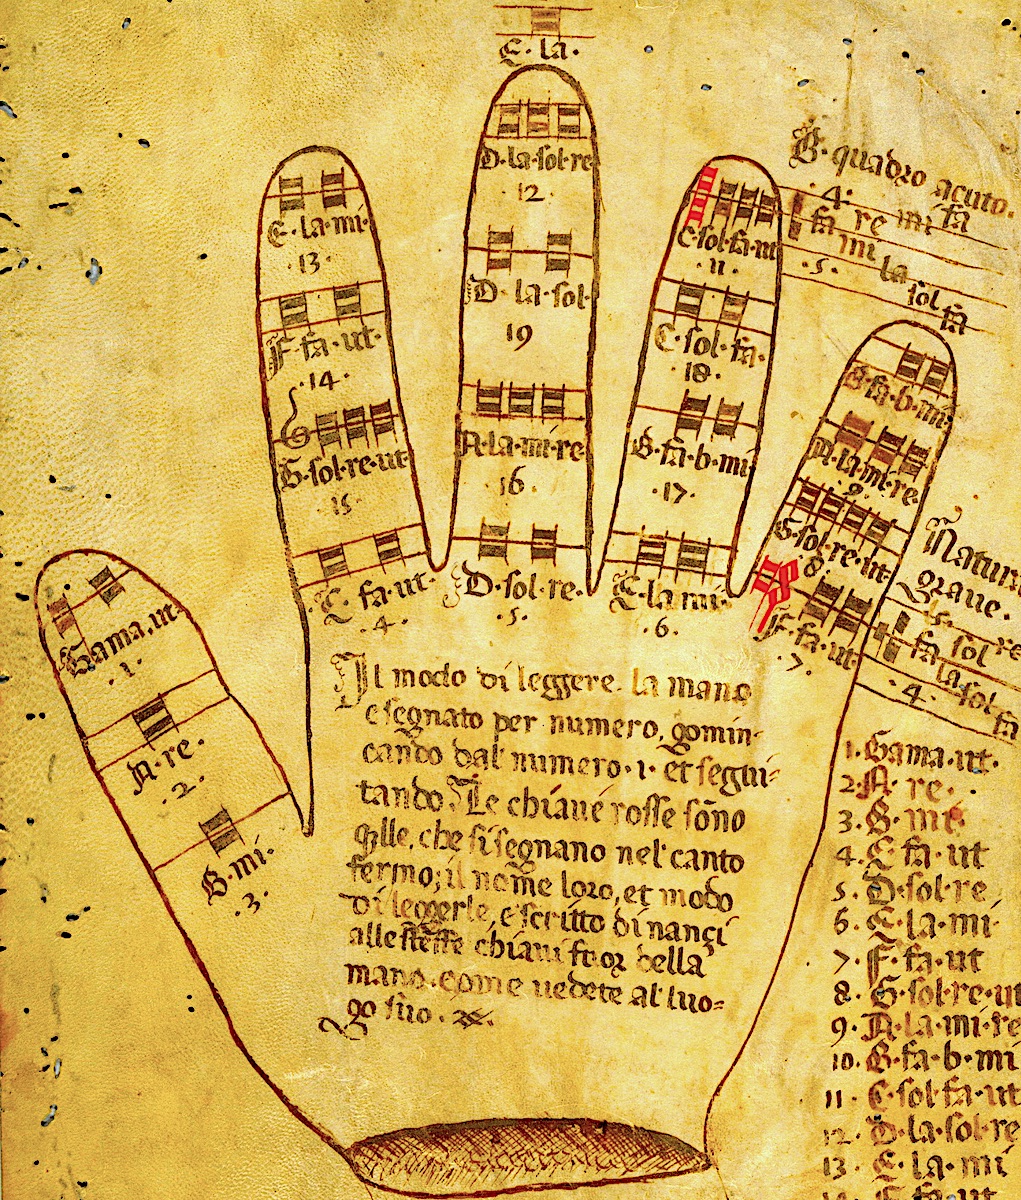 E·la·
D·la·sol·re
·12·
D·la·sol·
19
A·la·mi·re
16·
D·sol·re·
·5·
E·la·mi·
·13·
F·fa·ut·
·14·
G·sol·re·ut
15
C·fa·ut·
·4·
C·sol·fa·ut
·11·
C·sol·fa·
·18·
B·fa·b·mi
·17·
E·la·mi·
·6·
B·fa·b·mi
A·la·mi·re·
G·sol·re·ut
8
F·fa·ut·
·7·
Gama·ut·
·1·
A·re·
·2·
B·mi·
·3·
B·quadro acuto·
·4·
fa re mi fa
mi la sol fa
·5·
Natura
grave·
·5·
fa sol re
fa la sol fa
·4·
Il modo di leggere la mano
e segnato per numero, gomin-
cando dal numero·1· et segui-
tando Le chiave rosse sono
qlle, che si segnano nel canto
fermo; il nome loro, et modo
di leggerle, e scritto dinanci
alle stesse chiavi fuor della
mano, come vedete al luo=
go suo·
1·Gama·ut·
2·A·re·
3·B·mi·
4·C·fa·ut
5·D·sol·re
6·E·la·mi·
7·F·fa·ut
8·G·sol·re·ut
9·A·la·mi·re
10·B·fa·b·mi
11·C·sol·fa·ut
12·D·la·sol·re
13·E·la·mi
F·fa·ut